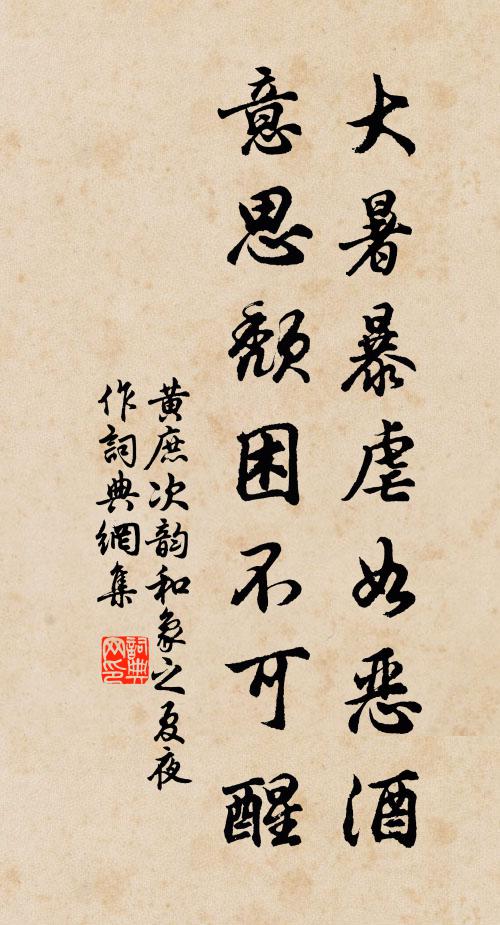 大暑暴虐如恶酒
意思颓困不可醒
黄庶次韵和象之夏夜
作詞典網集
詞典网印